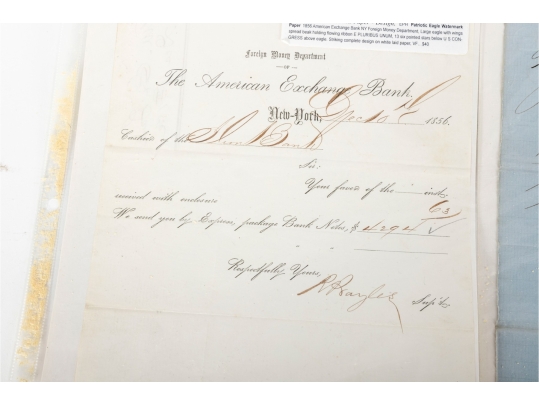 Paper 1856 American Exchange Bank NY Foreign Money Department. Large eagle with wings
spread beak holding flowing ribbon E PLURIBUS UNUM, 13 six pointed stars below U S CON-
GRESS above eagle. Striking complete design on white laid paper, VF. $40
Patriotic Eagle Watermark
Foreign Money Department
OF
The American Exchange Bank,
New-York, Dec 10 1856.
Cashier of the Bank
Sir:
Your favor of the inst.
received with enclosure
63
We send you by Express, package Bank Notes, $ 4294
" "
Respectfully Yours,
Sup't.